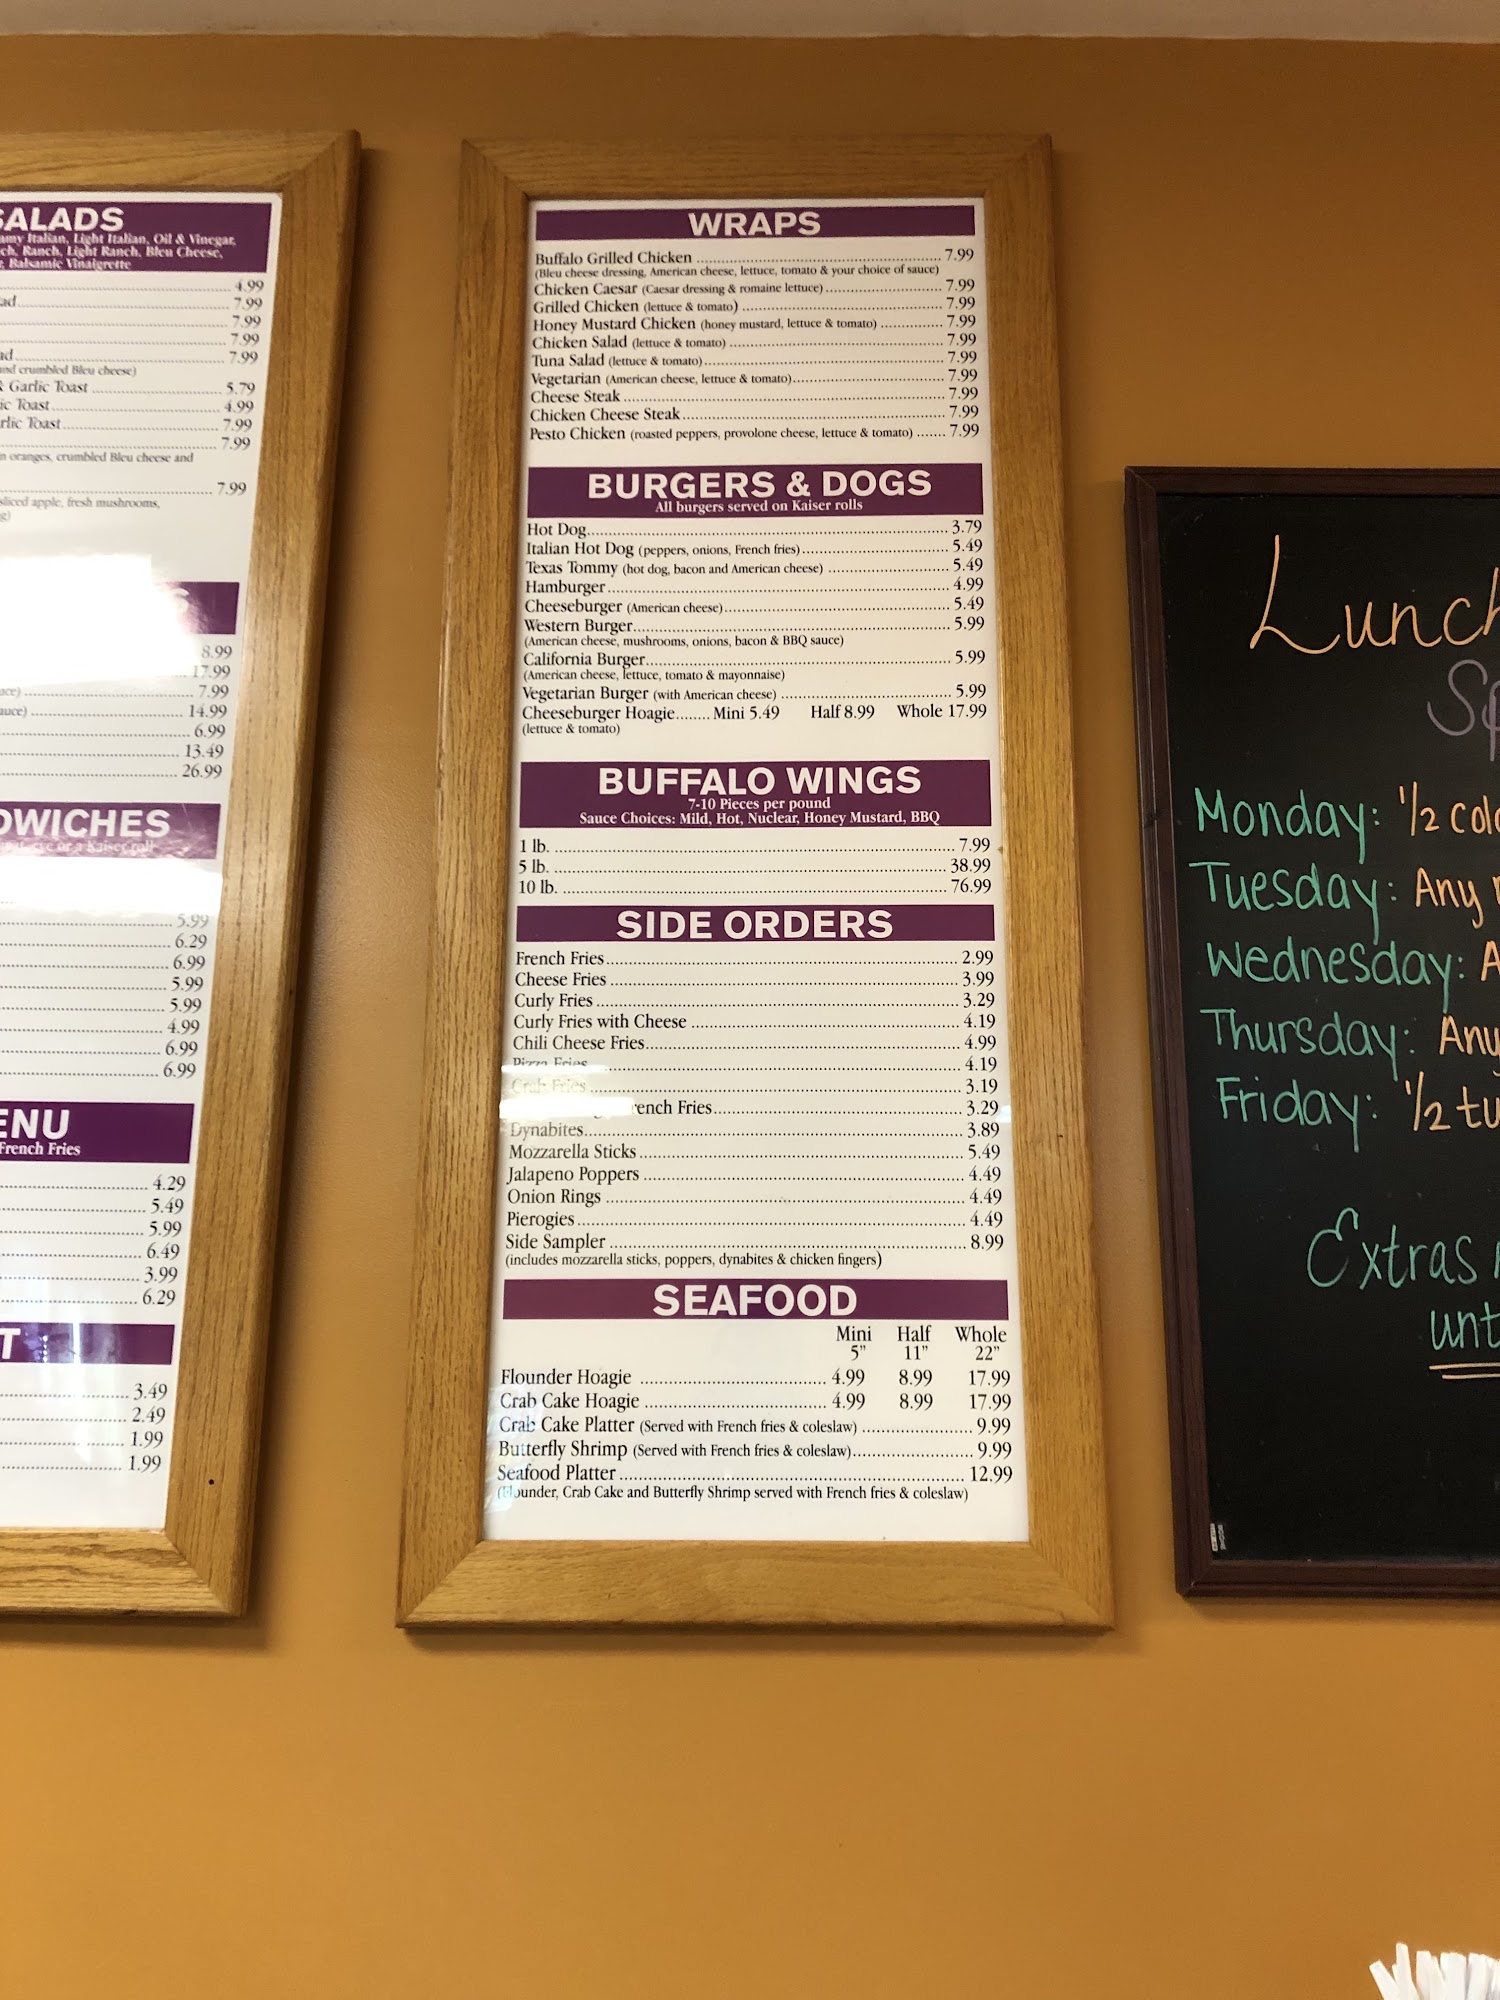 SALADS
Italian, Light Italian, Oil & Vinegar,
Ranch, Light Ranch, Bleu Cheese,
Balsamic Vinaigrette
4.99
7.99
7.99
7.99
7.99
and crumbled Bleu cheese)
& Garlic Toast 5.79
Toast 4.99
Toast 7.99
7.99
oranges, crumbled Bleu cheese and
7.99
sliced apple, fresh mushrooms,
8.99
17.99
7.99
14.99
6.99
13.49
26.99
5.99
6.29
6.99
5.99
5.99
4.99
6.99
6.99
French Fries
4.29
5.49
5.99
6.49
3.99
6.29
3.49
2.49
1.99
1.99
WRAPS
Buffalo Grilled Chicken 7.99
(Bleu cheese dressing, American cheese, lettuce, tomato & your choice of sauce)
Chicken Caesar (Caesar dressing & romaine lettuce) 7.99
Grilled Chicken (lettuce & tomato) 7.99
Honey Mustard Chicken (honey mustard, lettuce & tomato) 7.99
Chicken Salad (lettuce & tomato) 7.99
Tuna Salad (lettuce & tomato) 7.99
Vegetarian (American cheese, lettuce & tomato) 7.99
Cheese Steak 7.99
Chicken Cheese Steak 7.99
Pesto Chicken (roasted peppers, provolone cheese, lettuce & tomato) 7.99
BURGERS & DOGS
All burgers served on Kaiser rolls
Hot Dog 3.79
Italian Hot Dog (peppers, onions, French fries) 5.49
Texas Tommy (hot dog, bacon and American cheese) 5.49
Hamburger 4.99
Cheeseburger (American cheese) 5.49
Western Burger 5.99
(American cheese, mushrooms, onions, bacon & BBQ sauce)
California Burger 5.99
(American cheese, lettuce, tomato & mayonnaise)
Vegetarian Burger (with American cheese) 5.99
Cheeseburger Hoagie Mini 5.49 Half 8.99 Whole 17.99
(lettuce & tomato)
BUFFALO WINGS
7-10 Pieces per pound
Sauce Choices: Mild, Hot, Nuclear, Honey Mustard, BBQ
1 lb. 7.99
5 lb. 38.99
10 lb. 76.99
SIDE ORDERS
French Fries 2.99
Cheese Fries 3.99
Curly Fries 3.29
Curly Fries with Cheese 4.19
Chili Cheese Fries 4.99
Pizza Fries 4.19
Crab Fries 3.19
French Fries 3.29
Dynabites 3.89
Mozzarella Sticks 5.49
Jalapeno Poppers 4.49
Onion Rings 4.49
Pierogies 4.49
Side Sampler 8.99
(includes mozzarella sticks, poppers, dynabites & chicken fingers)
SEAFOOD
Mini Half Whole
5" 11" 22"
Flounder Hoagie 4.99 8.99 17.99
Crab Cake Hoagie 4.99 8.99 17.99
Crab Cake Platter (Served with French fries & coleslaw) 9.99
Butterfly Shrimp (Served with French fries & coleslaw) 9.99
Seafood Platter 12.99
(Flounder, Crab Cake and Butterfly Shrimp served with French fries & coleslaw)
Lunch
Sp
Monday: 1/2
Tuesday: Any
Wednesday:
Thursday: Any
Friday: 1/2
Extras